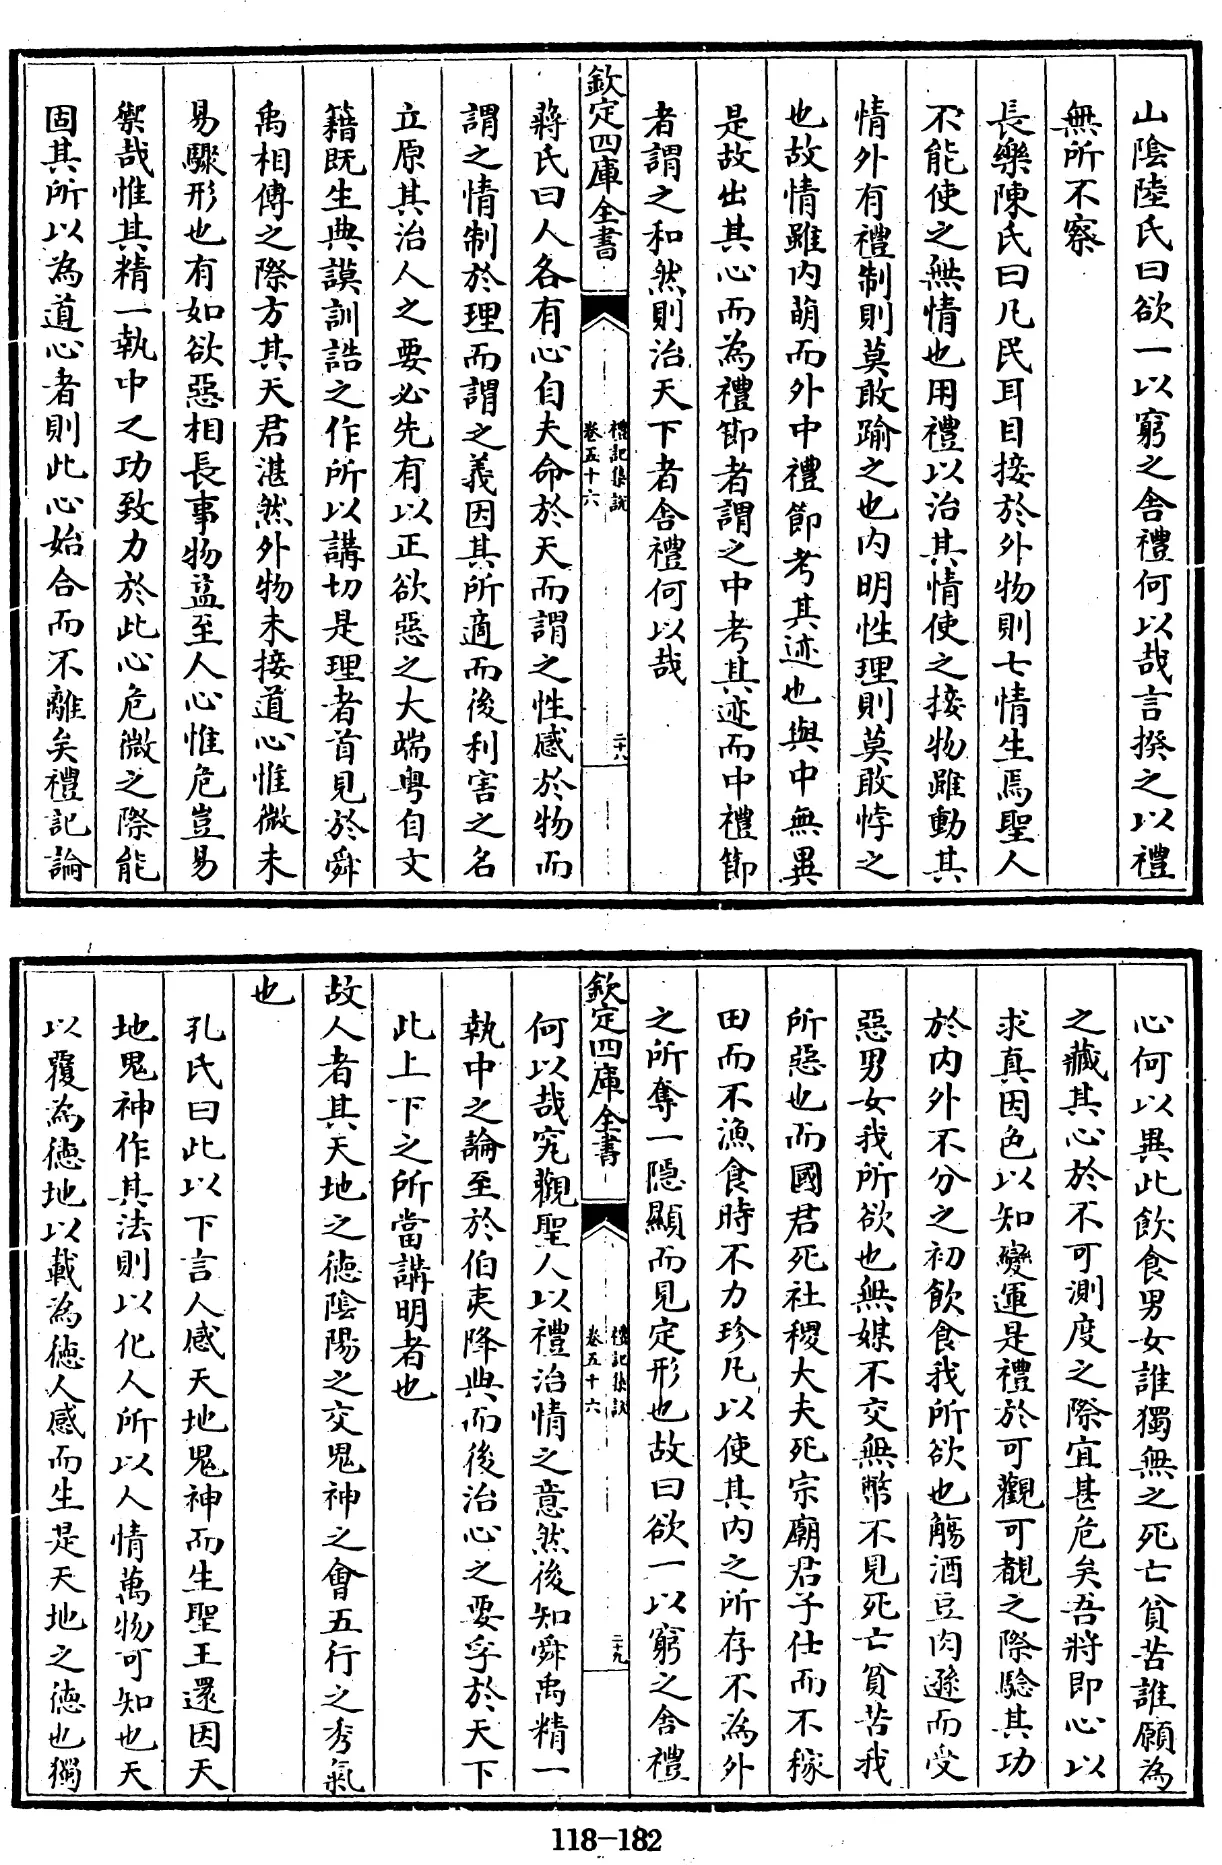 山陰陸氏曰欲一以窮之舍禮何以哉言揆之以禮
無所不察
長樂陳氏曰凡民耳目接於外物則七情生焉聖人
不能使之無情也用禮以治其情使之接物雖動其
情外有禮制則莫敢踰之也内明性理則莫敢悖之
也故情雖内萌而外中禮節考其迹也與中無異
是故出其心而為禮節者謂之中考其迹而中禮節
者謂之和然則治天下者舍禮何以哉
欽定四庫全書
禮記集説
卷五十六
二十八
蔣氏曰人各有心自夫命於天而謂之性感於物而
謂之情制於理而謂之義因其所適而後利害之名
立原其治人之要必先有以正欲惡之大端粤自文
籍既生典謨訓誥之作所以講切是理者首見於舜
禹相傳之際方其天君湛然外物未接道心惟微未
易驟形也有如欲惡相長事物益至人心惟危豈易
禦哉惟其精一執中之功致力於此心危微之際能
固其所以為道心者則此心始合而不離矣禮記論
心何以異此飲食男女誰獨無之死亡貧苦誰願為
之藏其心於不可測度之際宜甚危矣吾將即心以
求真因色以知變運是禮於可觀可覩之際驗其功
於内外不分之初飲食我所欲也觴酒豆肉遜而受
惡男女我所欲也無媒不交無幣不見死亡貧苦我
所惡也而國君死社稷大夫死宗廟君子仕而不稼
田而不漁食時不力珍凡以使其内之所存不為外
之所奪一隱顯而見定形也故曰欲一以窮之舍禮
欽定四庫全書
禮記集説
卷五十六
二十九
何以哉究觀聖人以禮治情之意然後知舜禹精一
執中之論至於伯夷降典而後治心之要孚於天下
此上下之所當講明者也
故人者其天地之德陰陽之交鬼神之會五行之秀氣
也
孔氏曰此以下言人感天地鬼神而生聖王還因天
地鬼神作其法則以化人所以人情萬物可知也天
以覆為德地以載為德人感而生是天地之德也獨
118-182